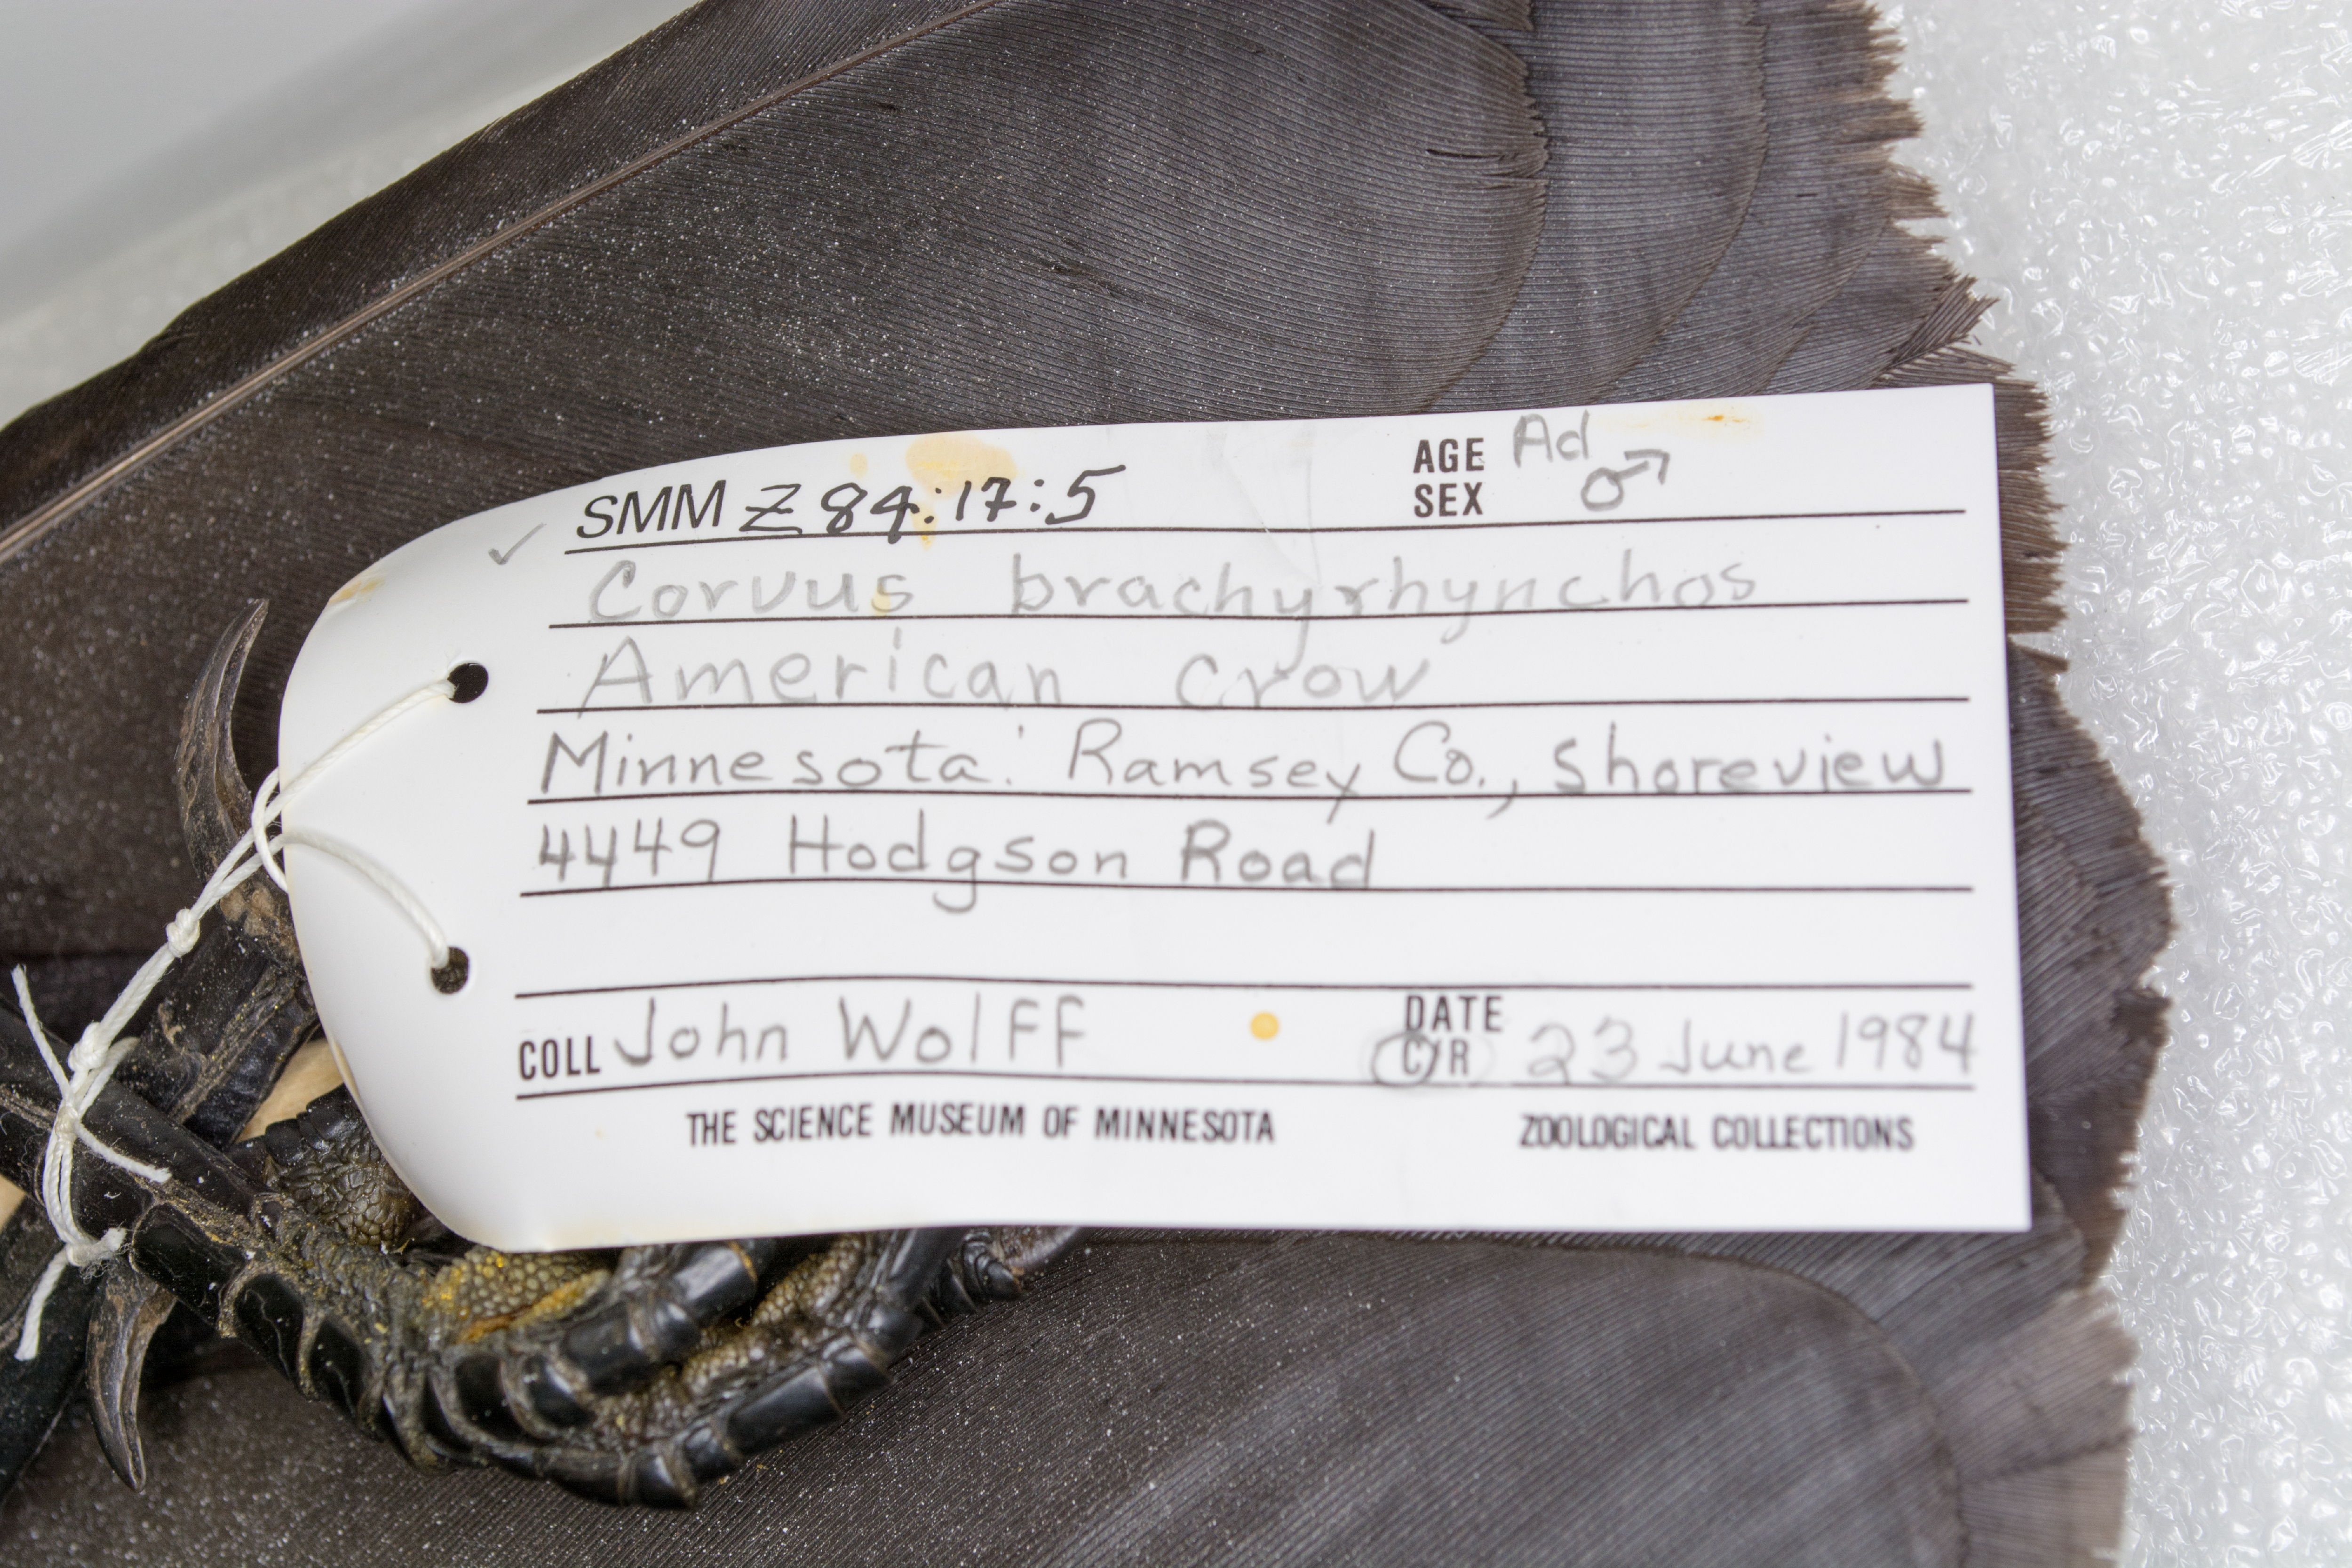 SMM Z 84:17:5 AGE Ad
SEX ♂
Corvus brachyrhynchos
American crow
Minnesota: Ramsey Co., Shoreview
4449 Hodgson Road
COLL John Wolff DATE C/R 23 June 1984
THE SCIENCE MUSEUM OF MINNESOTA ZOOLOGICAL COLLECTIONS